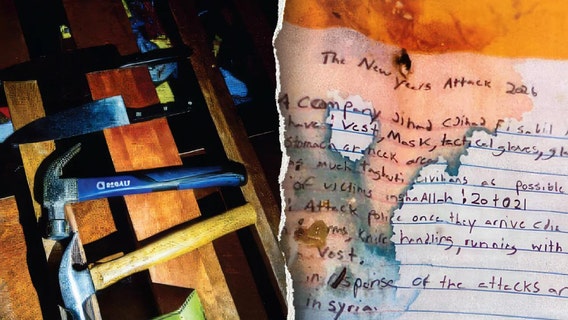 REGALT
The New Years Attack 2026
company Jihad (Jihad Fi sabil
have 1 Vest, Mask, tactical gloves,
stomach or neck area
much civilians as possible
of victims inshaAllah: 20 to 21
Attack police once they arrive
knife handling, running with
Vest.
in response of the attacks
in syria.